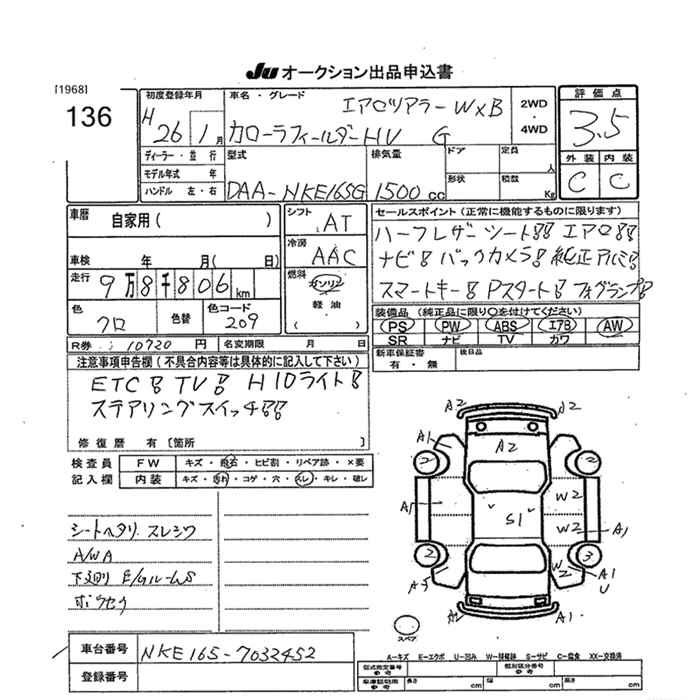 Ju オークション出品申込書
[1968]
136
初度登録年月
H 26 1月
車名・グレード
エアロツアラー WxB
カローラフィールダーHV G
2WD
・
4WD
評価点
3.5
外装 内装
C C
ディーラー・並行
モデル年式 年
ハンドル 左・右
型式
DAA-NKE165G
排気量
1500 cc
ドア
形状
定員 人
積数 Kg
車歴 自家用( )
車検 年 月( 日)
走行 9万8千806km
色 クロ
色替
色コード 209
シフト AT
冷房 AAC
燃料
ガソリン
軽油
( )
セールスポイント(正常に機能するものに限ります)
ハーフレザーシート!! エアロ!!
ナビ! バックカメラ! 純正アルミ!
スマートキー! Pスタート! フォグランプ!
装備品(純正品に限り○を付けてください)
PS PW ABS エアB AW
SR ナビ TV カワ
新車保証書 有・無
後日品
R券 10720 円
名変期限 月 日
注意事項申告欄(不具合内容等は具体的に記入して下さい)
ETC! TV! HIDライト!
ステアリングスイッチ!!
修復歴 有〔箇所 〕
検査員 FW キズ・飛石・ヒビ割・リペア跡・×要
記入欄 内装 キズ・汚れ・コゲ・穴・スレ・キレ・破レ
シートヘタリ スレシワ
A/WA
下廻り E/Gルームサ
ボクセク
車台番号 NKE165-7032452
登録番号
A2 A2
A1 A2
2 2
A1 W2
S1 W2 A1
2 3
A3 W2 A1
U
A2 A1
スペア
A-キズ E-エクボ U-凹み W-補修跡 S-サビ C-腐食 XX-交換済
型式指定番号 参考
類別区分番号 参考
車庫証明用 参考
長さ cm 幅 cm 高さ cm